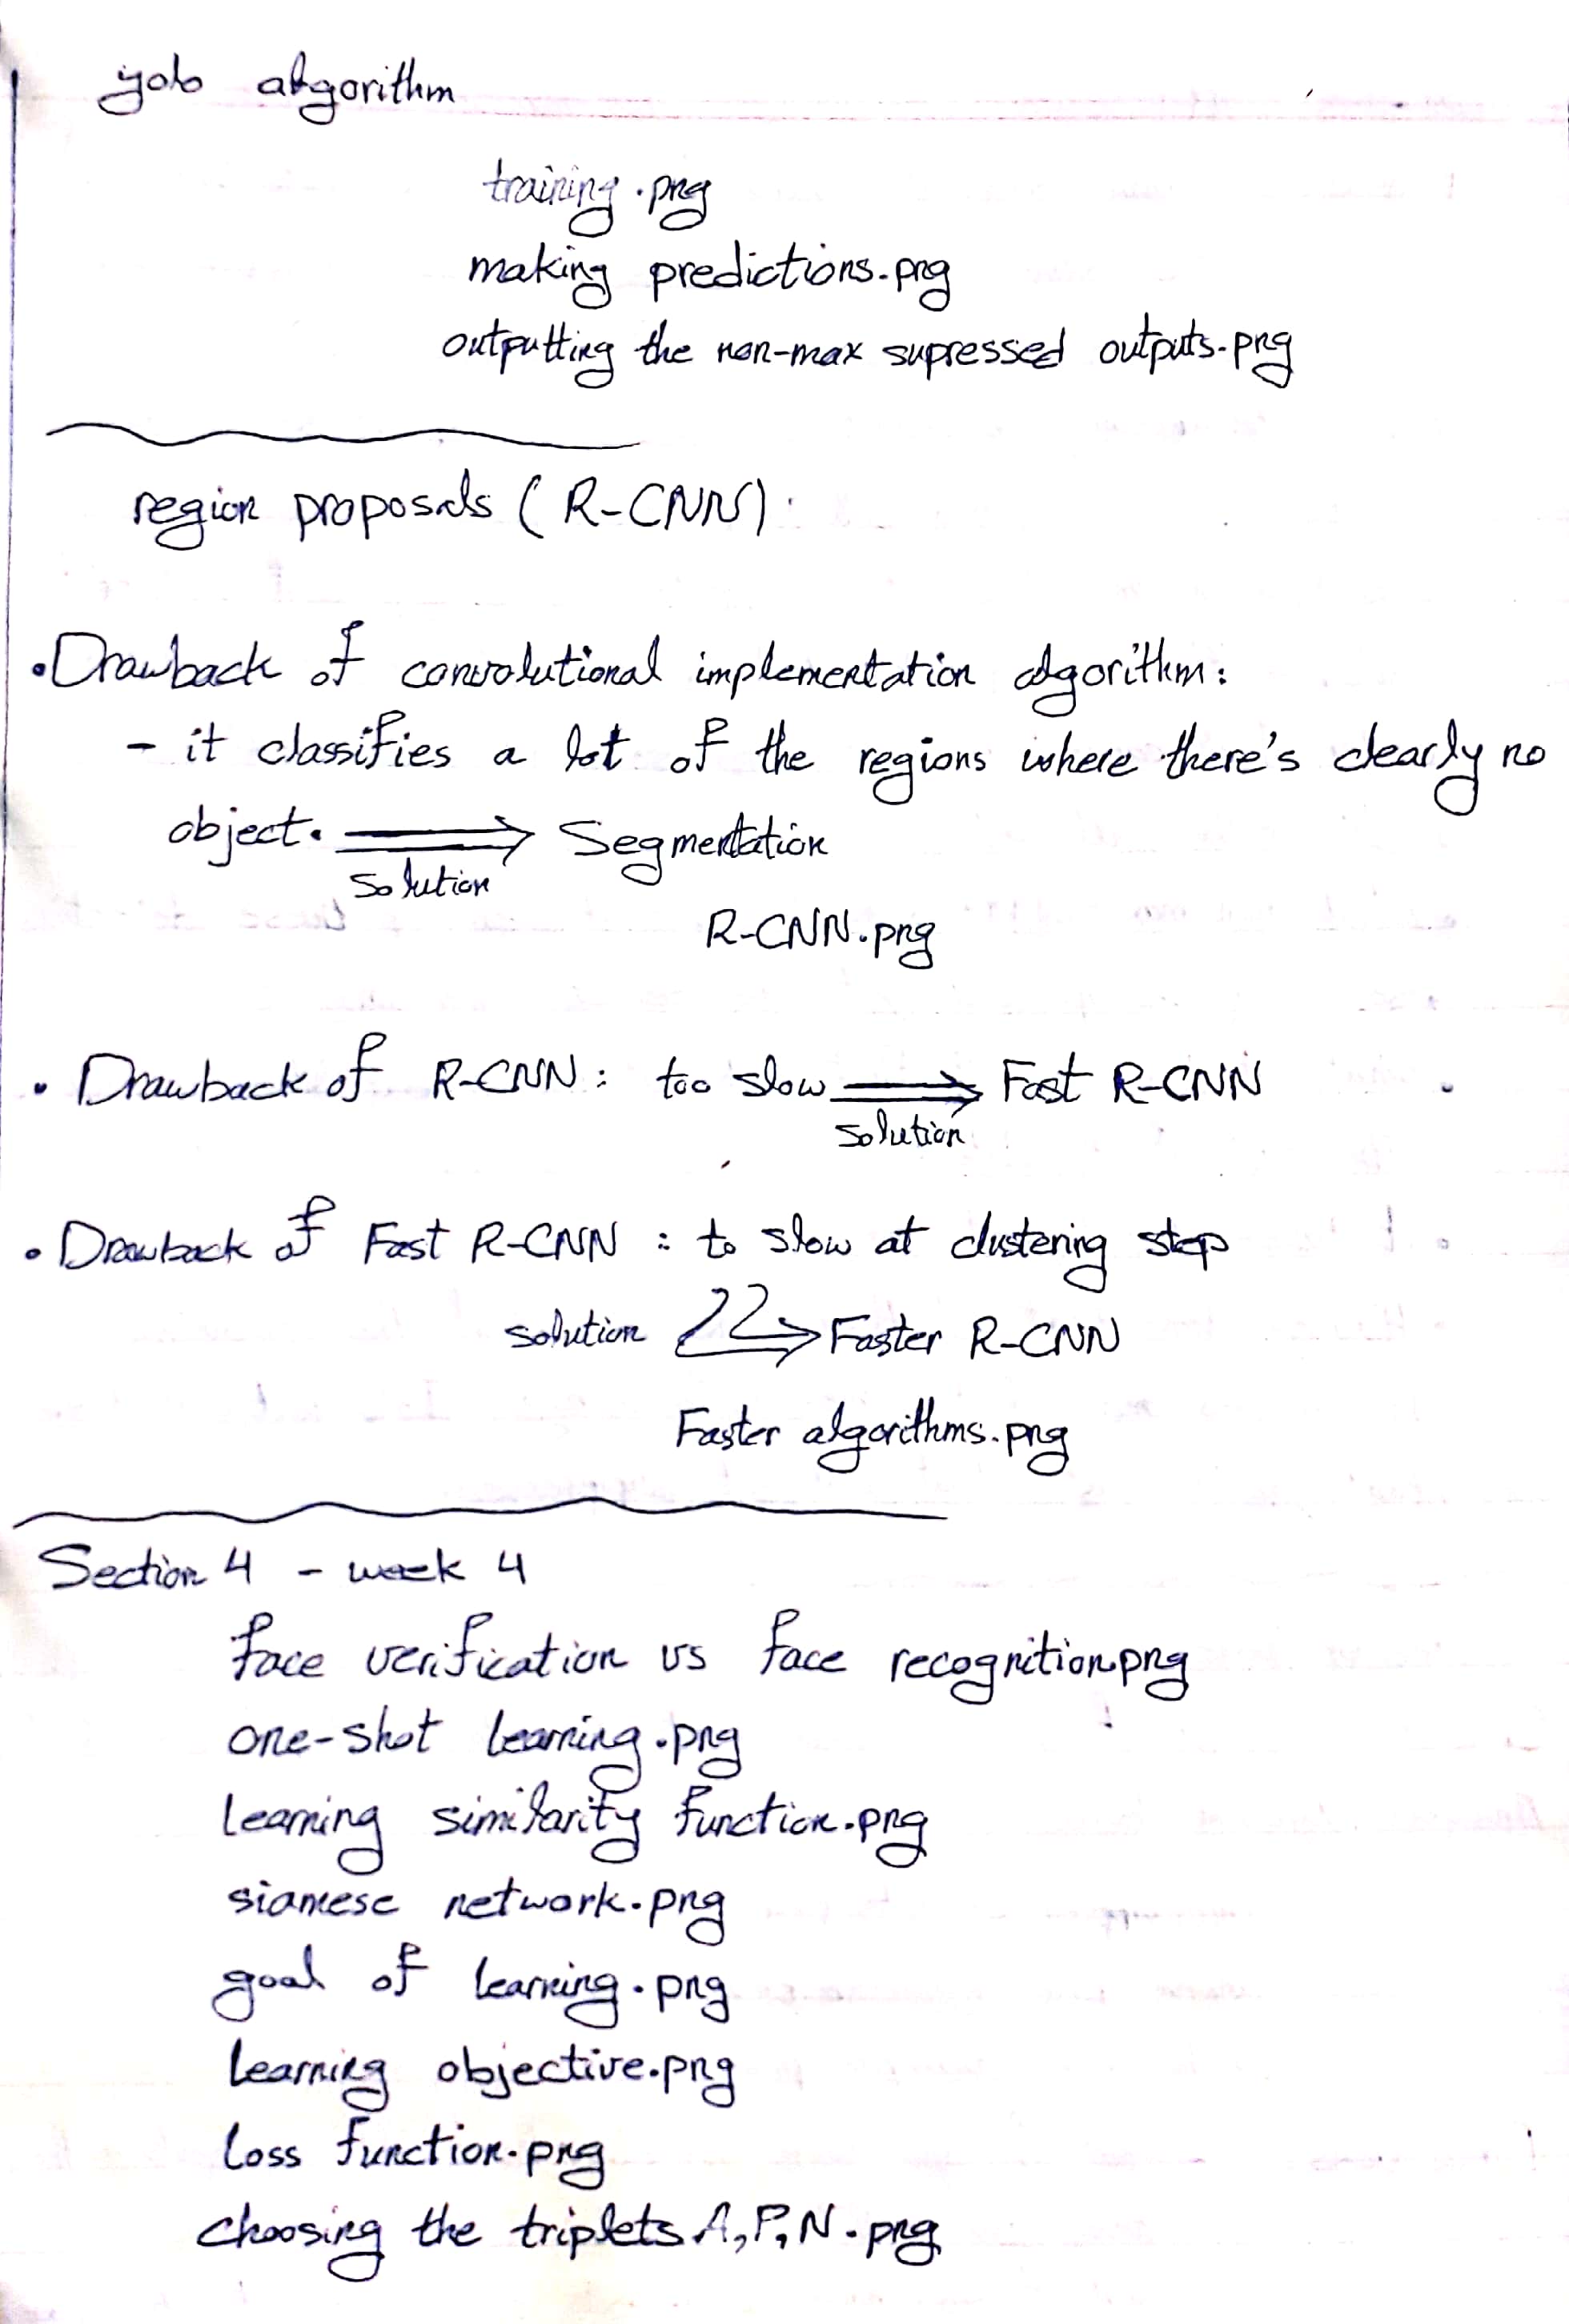 yolo algorithm
training.png
making predictions.png
outputting the non-max supressed outputs.png
region proposals (R-CNN)
• Drawback of convolutional implementation algorithm:
- it classifies a lot of the regions where there's clearly no
object. ⟹ Segmentation
solution
R-CNN.png
• Drawback of R-CNN: too slow ⟹ Fast R-CNN
solution
• Drawback of Fast R-CNN : to slow at clustering step
solution ⟹ Faster R-CNN
Faster algorithms.png
Section 4 - week 4
face verification vs face recognition.png
one-shot learning.png
learning similarity function.png
siamese network.png
goal of learning.png
learning objective.png
loss function.png
choosing the triplets A,P,N.png